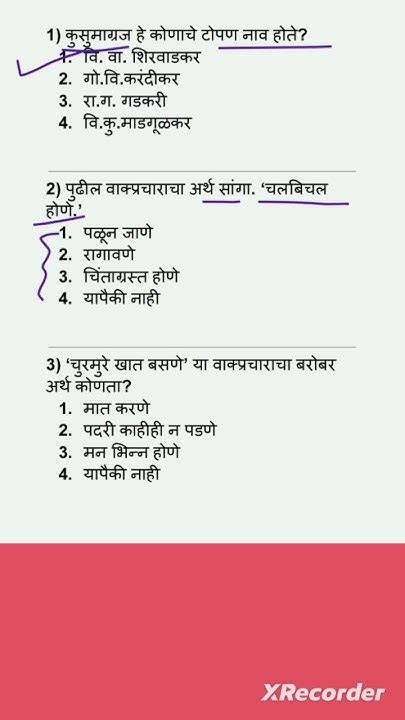 1) कुसुमाग्रज हे कोणाचे टोपण नाव होते?
1. वि. वा. शिरवाडकर
2. गो.वि.करंदीकर
3. रा.ग. गडकरी
4. वि.कु.माडगूळकर
2) पुढील वाक्प्रचाराचा अर्थ सांगा. ‘चलबिचल
होणे.’
1. पळून जाणे
2. रागावणे
3. चिंताग्रस्त होणे
4. यापैकी नाही
3) ‘चुरमुरे खात बसणे’ या वाक्प्रचाराचा बरोबर
अर्थ कोणता?
1. मात करणे
2. पदरी काहीही न पडणे
3. मन भिन्न होणे
4. यापैकी नाही
XRecorder